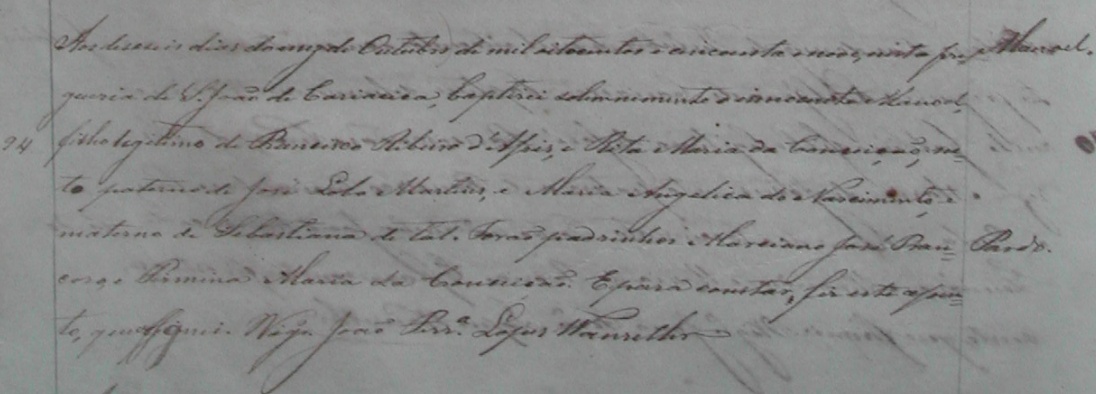 Aos deseseis dias do mez de Outubro de mil oitocentos e cincoenta e nove, nesta fre= Manoel.
guesia de S. João de Cariacica, baptisei solemnemente o innocente Manoel,
94 filho legitimo de Francisco Ribeiro d'Assis, e Rita Maria da Conceição, ne=
to paterno de José Lobo Martins, e Maria Angelica do Nascimento, e
materno de Sebastiana de tal. Forão padrinhos Marciano José Fran= Pardo.
co, e Firmina Maria da Conceição. E para constar, fiz este assen=
to, que assignei. Vigr.o João Ferr.a Lopes Wanzeller